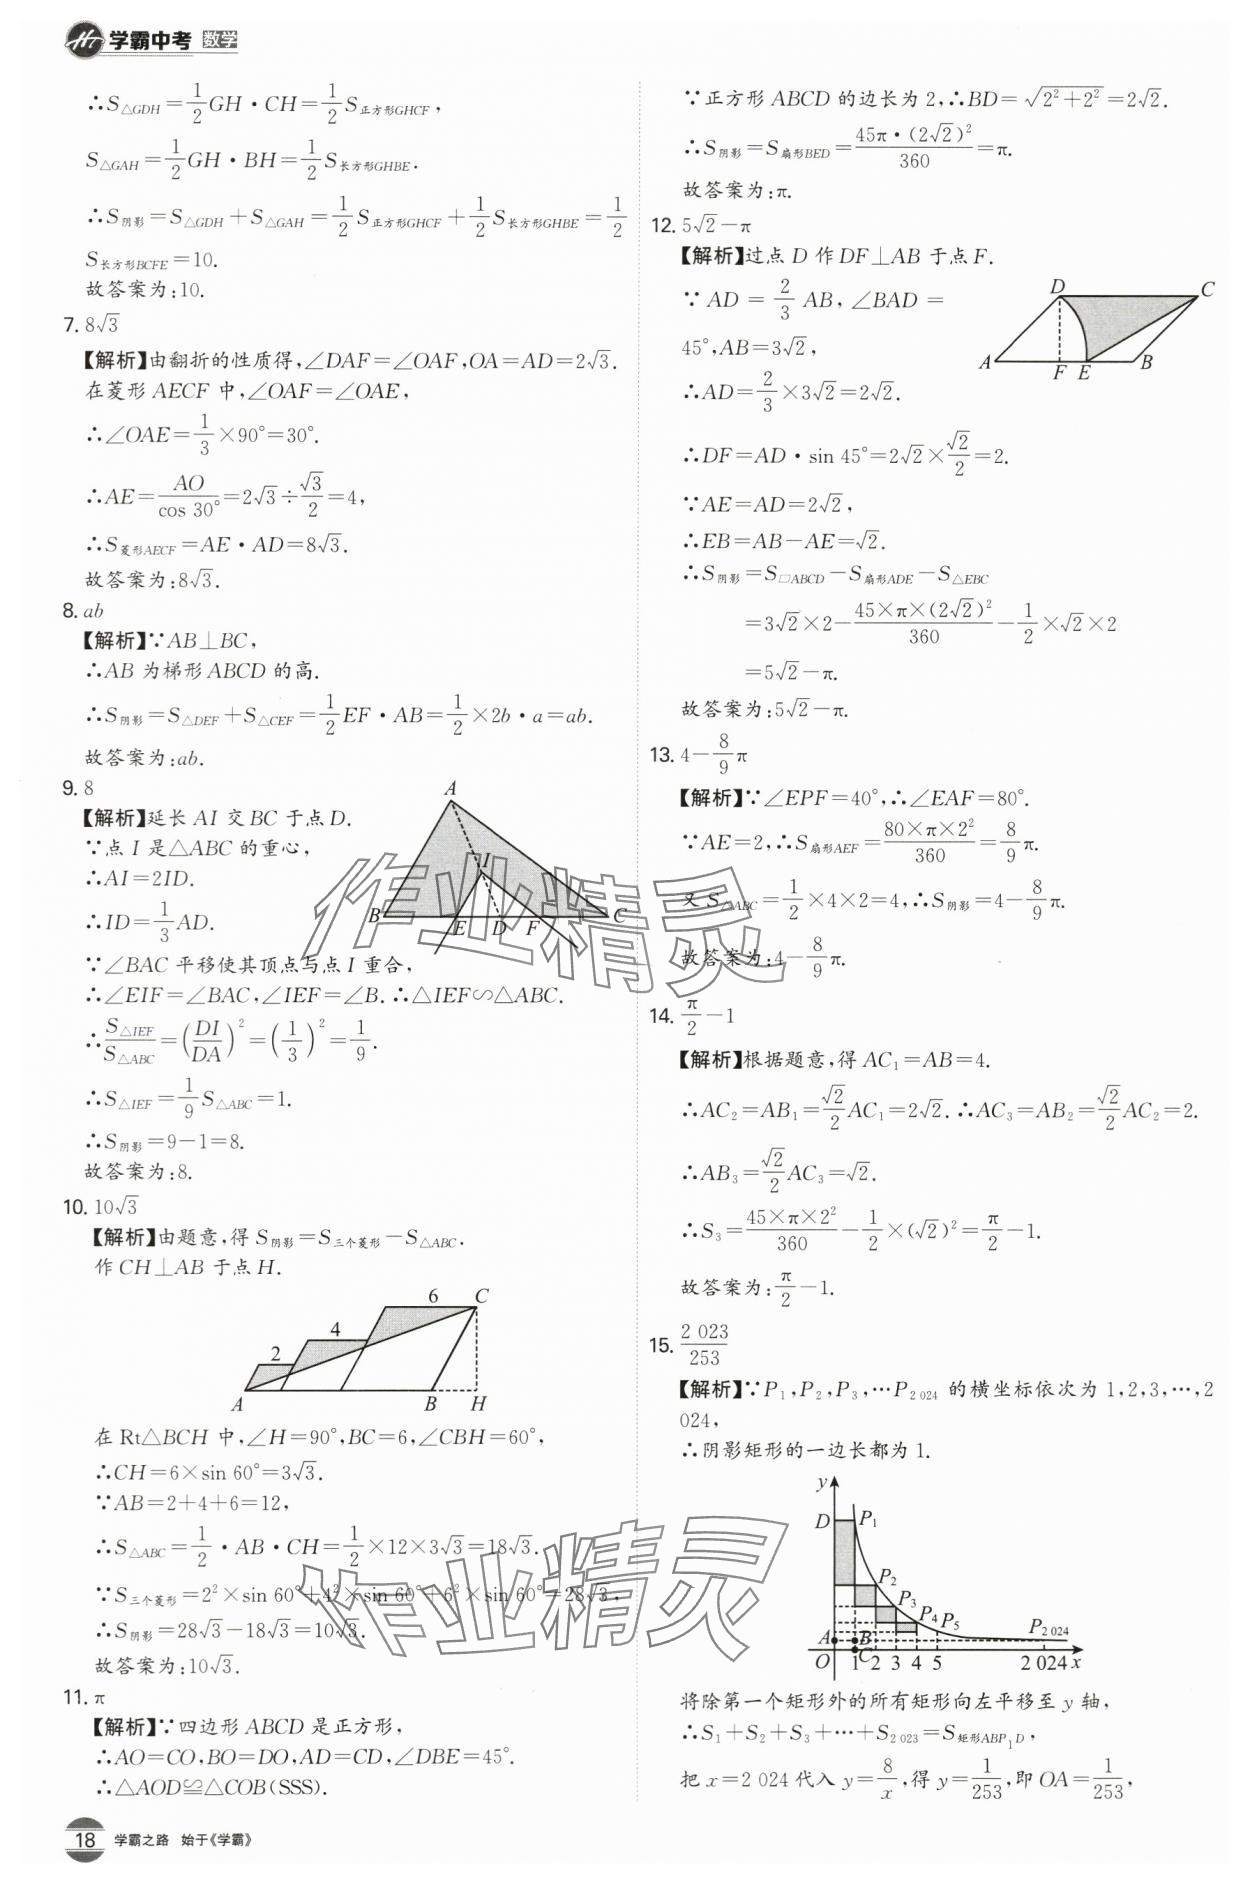 学霸中考 数学
∴S△GDH=1/2GH·CH=1/2S正方形GHCF,
S△GAH=1/2GH·BH=1/2S长方形GHBE.
∴S阴影=S△GDH+S△GAH=1/2S正方形GHCF+1/2S长方形GHBE=1/2
S长方形BCFE=10.
故答案为:10.
7. 8√3
【解析】由翻折的性质得,∠DAF=∠OAF,OA=AD=2√3.
在菱形AECF中,∠OAF=∠OAE,
∴∠OAE=1/3×90°=30°.
∴AE=AO/cos 30°=2√3÷√3/2=4,
∴S菱形AECF=AE·AD=8√3.
故答案为:8√3.
8. ab
【解析】∵AB⊥BC,
∴AB为梯形ABCD的高.
∴S阴影=S△DEF+S△CEF=1/2EF·AB=1/2×2b·a=ab.
故答案为:ab.
9. 8
【解析】延长AI交BC于点D.
∵点I是△ABC的重心,
∴AI=2ID.
∴ID=1/3AD.
∵∠BAC平移使其顶点与点I重合,
∴∠EIF=∠BAC,∠IEF=∠B.∴△IEF∽△ABC.
∴S△IEF/S△ABC=(DI/DA)²=(1/3)²=1/9.
∴S△IEF=1/9S△ABC=1.
∴S阴影=9-1=8.
故答案为:8.
A
I
B E D F C
10. 10√3
【解析】由题意,得S阴影=S三个菱形-S△ABC.
作CH⊥AB于点H.
6 C
4
2
A B H
在Rt△BCH中,∠H=90°,BC=6,∠CBH=60°,
∴CH=6×sin 60°=3√3.
∵AB=2+4+6=12,
∴S△ABC=1/2·AB·CH=1/2×12×3√3=18√3.
∵S三个菱形=2²×sin 60°+4²×sin 60°+6²×sin 60°=28√3,
∴S阴影=28√3-18√3=10√3.
故答案为:10√3.
11. π
【解析】∵四边形ABCD是正方形,
∴AO=CO,BO=DO,AD=CD,∠DBE=45°.
∴△AOD≌△COB(SSS).
∵正方形ABCD的边长为2,∴BD=√(2²+2²)=2√2.
∴S阴影=S扇形BED=45π·(2√2)²/360=π.
故答案为:π.
12. 5√2-π
【解析】过点D作DF⊥AB于点F.
∵AD=2/3AB,∠BAD=
45°,AB=3√2,
∴AD=2/3×3√2=2√2.
D C
A F E B
∴DF=AD·sin 45°=2√2×√2/2=2.
∵AE=AD=2√2,
∴EB=AB-AE=√2.
∴S阴影=S□ABCD-S扇形ADE-S△EBC
=3√2×2-45×π×(2√2)²/360-1/2×√2×2
=5√2-π.
故答案为:5√2-π.
13. 4-8/9π
【解析】∵∠EPF=40°,∴∠EAF=80°.
∵AE=2,∴S扇形AEF=80×π×2²/360=8/9π.
又S△ABC=1/2×4×2=4,∴S阴影=4-8/9π.
故答案为:4-8/9π.
14. π/2-1
【解析】根据题意,得AC₁=AB=4.
∴AC₂=AB₁=√2/2AC₁=2√2.∴AC₃=AB₂=√2/2AC₂=2.
∴AB₃=√2/2AC₃=√2.
∴S₃=45×π×2²/360-1/2×(√2)²=π/2-1.
故答案为:π/2-1.
15. 2 023/253
【解析】∵P₁,P₂,P₃,…P₂ ₀₂₄的横坐标依次为1,2,3,…,2
024,
∴阴影矩形的一边长都为1.
y
D P₁
P₂
P₃
P₄ P₅
P₂ ₀₂₄
A B
O C 1 2 3 4 5 2 024 x
将除第一个矩形外的所有矩形向左平移至y轴,
∴S₁+S₂+S₃+…+S₂ ₀₂₃=S矩形ABP₁D,
把x=2 024代入y=8/x,得y=1/253,即OA=1/253,
18 学霸之路 始于《学霸》
作业精灵
作业精灵